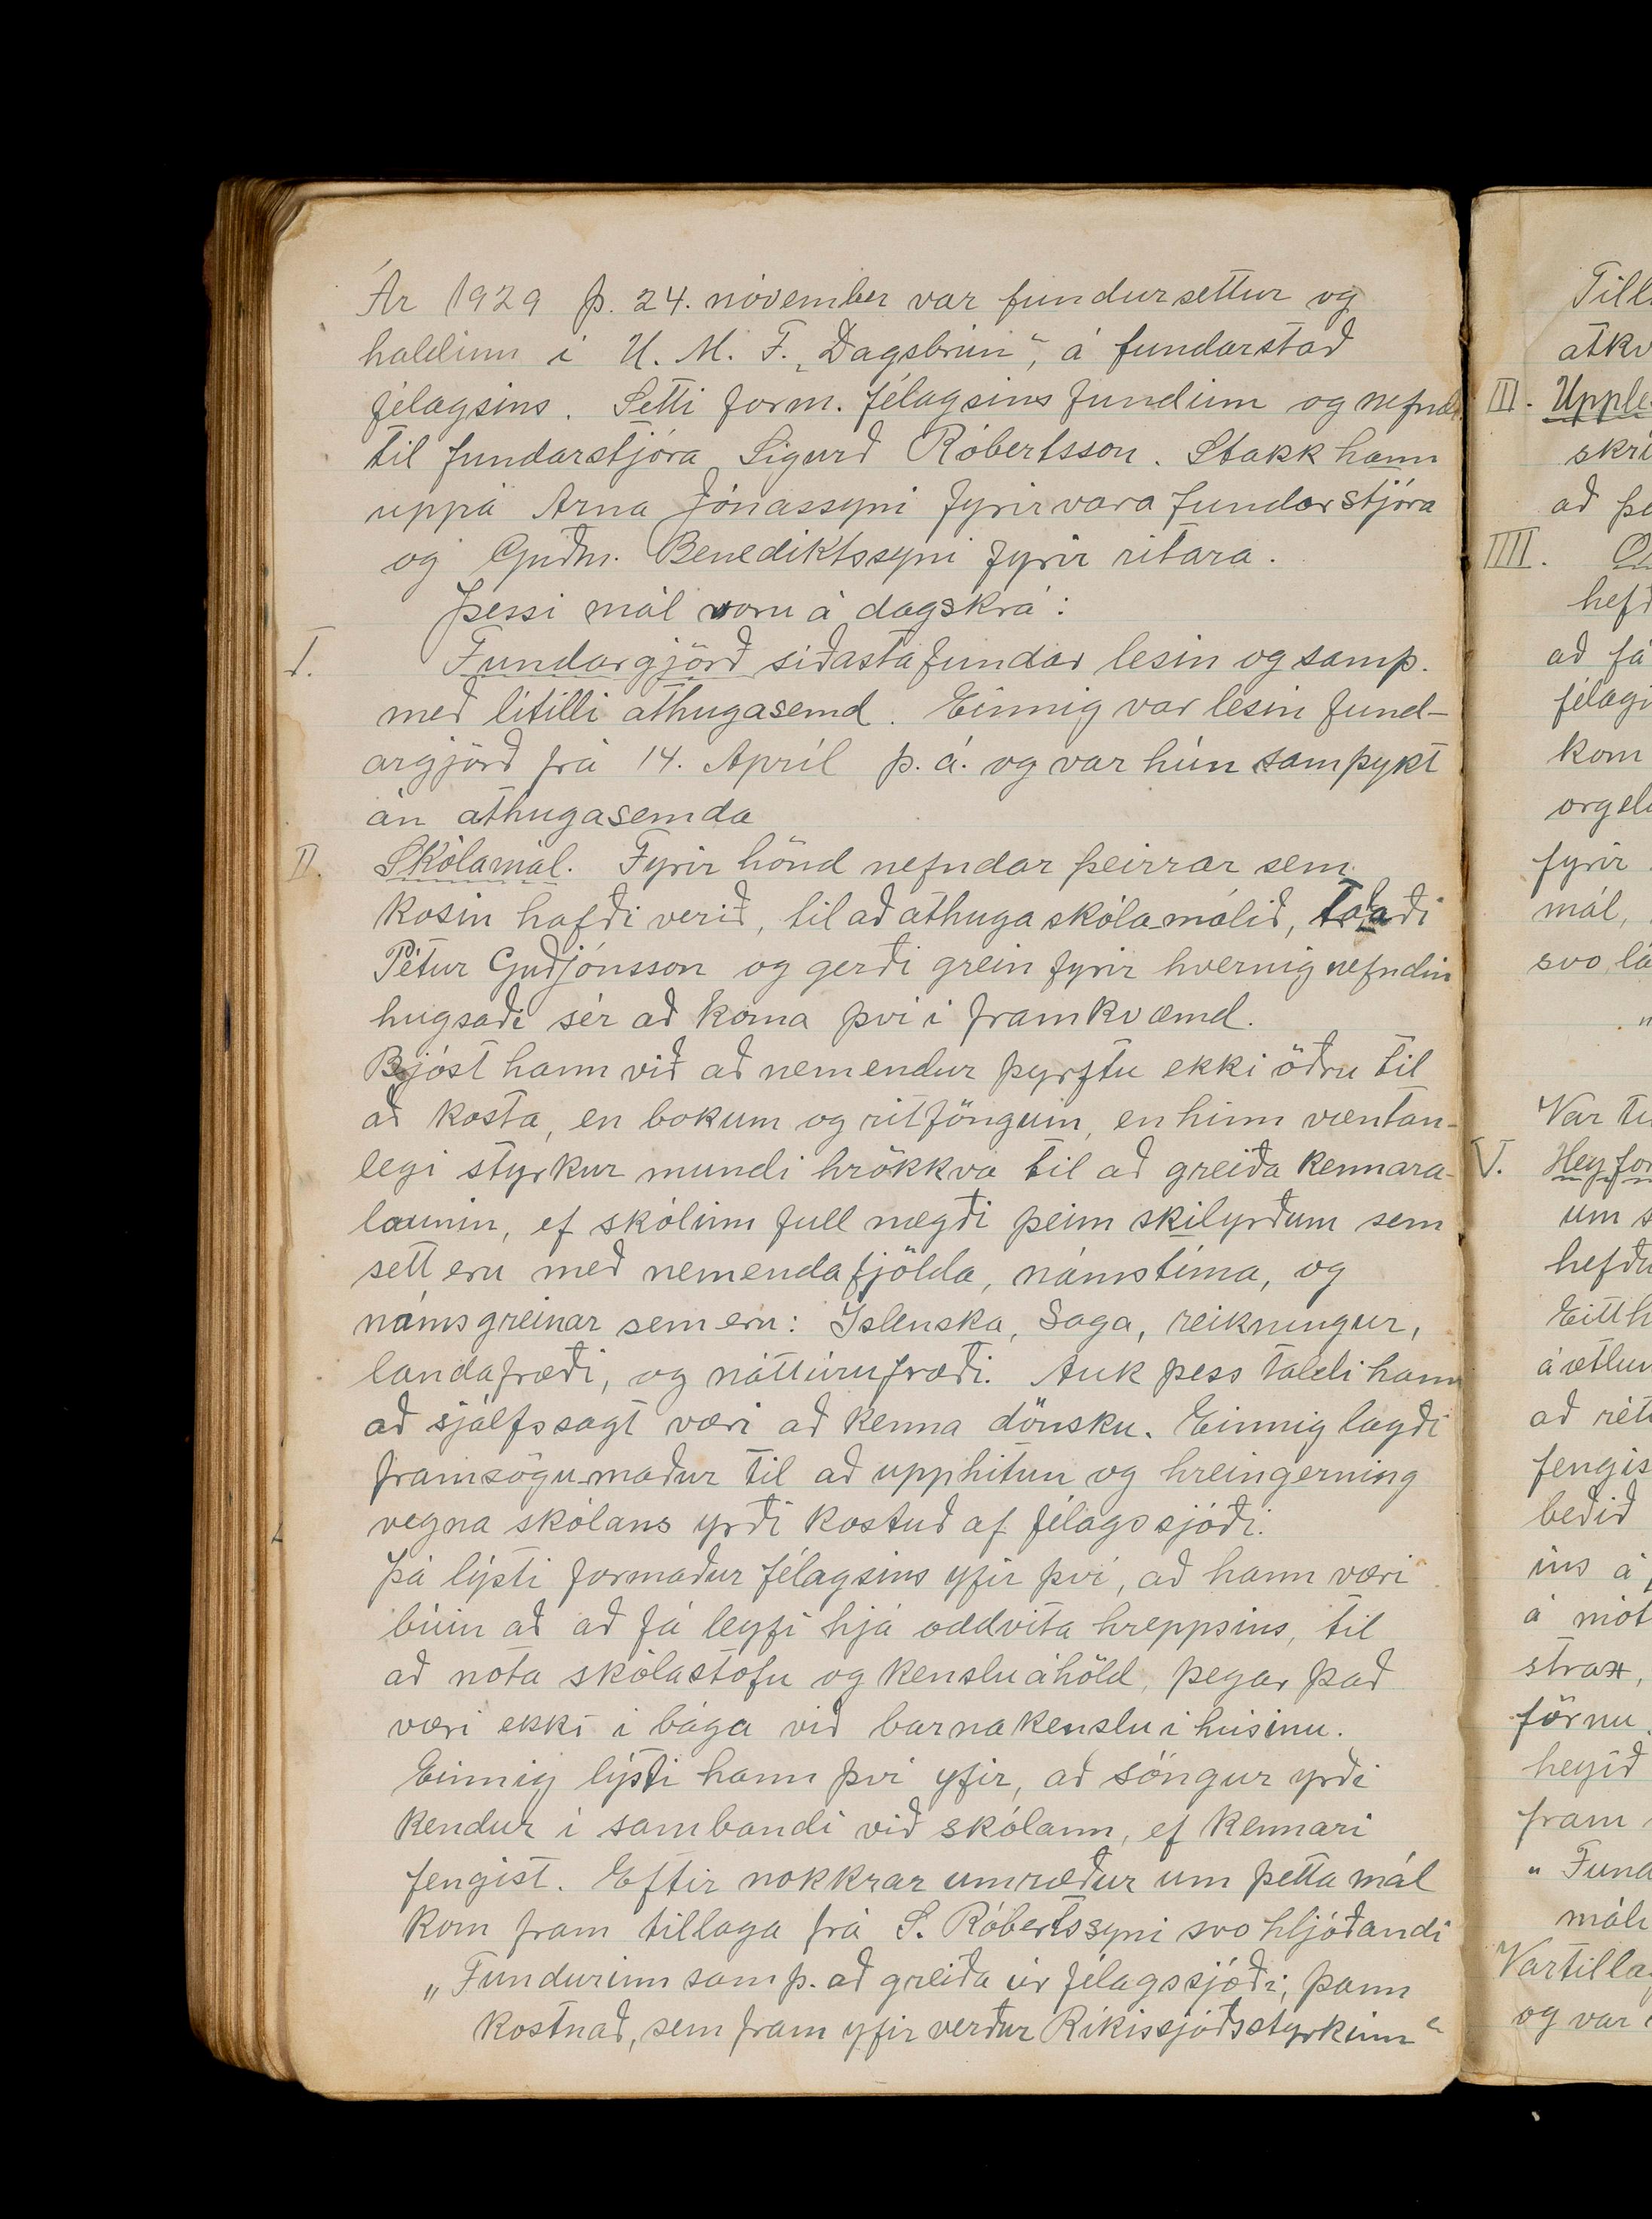 Ár 1929 þ. 24. nóvember var fundur settur og
haldinn í U. M. F. „Dagsbrún“, á fundarstað
félagsins. Setti form. félagsins fundinn og nefndi
til fundarstjóra Sigurð Róbertsson. Stakk hann
uppá Árna Jónassyni fyrir vara fundarstjóra
og Guðm. Benediktssyni fyrir ritara.
Þessi mál voru á dagskrá:
I. Fundargjörð síðasta fundar lesin og samþ.
með lítilli athugasemd. Einnig var lesin fund-
argjörð frá 14. Apríl þ.á. og var hún samþykt
án athugasemda
II. Skólamál. Fyrir hönd nefndar þeirrar sem
kosin hafði verið, til að athuga skóla-málið, talaði
Pétur Guðjónsson og gerði grein fyrir hvernig nefndin
hugsaði sér að koma því í framkvæmd.
Bjóst hann við að nemendur þyrftu ekki öðru til
að kosta, en bokum og ritföngum, en hinn væntan-
legi styrkur mundi hrökkva til að greiða kennara-
launin, ef skólinn full nægði þeim skilyrðum sem
sett eru með nemendafjölda, námstíma, og
námsgreinar sem eru: Íslenska, Saga, reikningur,
landafræði, og náttúrufræði. Auk þess taldi hann
að sjálfssagt væri að kenna dönsku. Einnig lagði
framsögu-maður til að upphitun og hreingerning
vegna skólans yrði kostuð af félagssjóði.
Þá lýsti formaður félagsins yfir því, að hann væri
búin að að fá leyfi hjá oddvita hreppsins, til
að nota skólastofu og kensluáhöld, þegar það
væri ekki í bága við barnakenslu í húsinu.
Einnig lýsti hann því yfir, að söngur yrði
kendur í sambandi við skólann, ef kennari
fengist. Eftir nokkrar umræður um þetta mál
kom fram tillaga frá S. Róbertssyni svo hljóðandi
„Fundurinn samþ. að greiða úr félagssjóði, þann
kostnað, sem fram yfir verður Ríkissjóðsstyrkinn“
Till
atkv
III. Upple
skri
að þe
IIII.
hefð
að fá
félagi
kom
orgel
fyrir
mál,
svo lá
„
Var ti
V. Hey for
um s
hefðu
Eitt h
áætlun
að rét
fengis
beðið
ins á
á mót
strax,
förnu
heyið
fram
„Fund
máli
Var tillag
og var